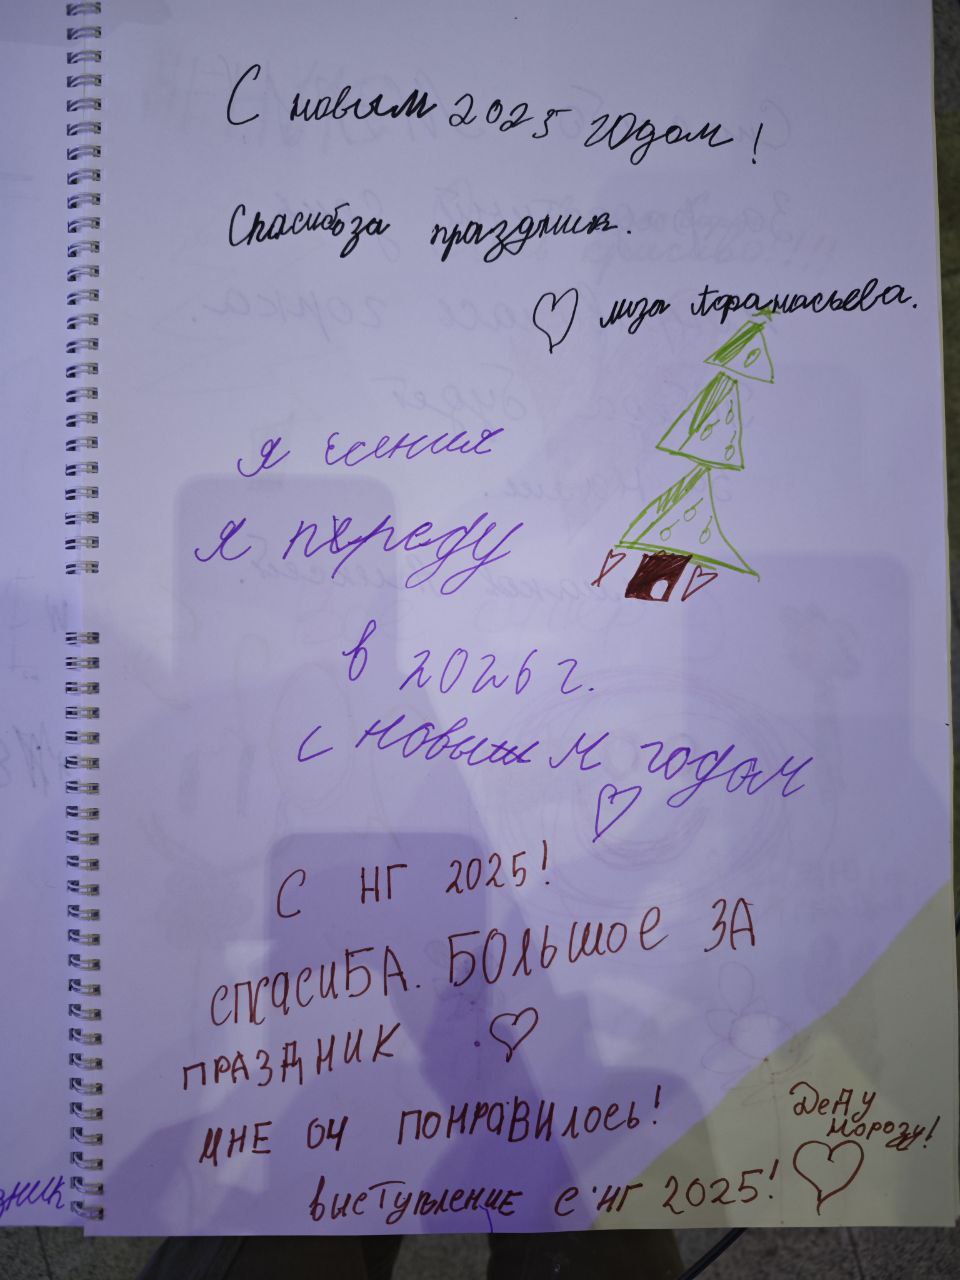 С новым 2025 годом!
Спасибза праздник.
лиза Афанасьева.
я есения
я переду
в 2026 г.
с новым годом
С НГ 2025!
СПАСИБА. БОЛЬШОЕ ЗА
ПРАЗДНИК
МНЕ ОЧ ПОНРАВИЛОСЬ!
ВЫСТУПЛЕНИЕ С НГ 2025!
ДЕДУ
МОРОЗУ!